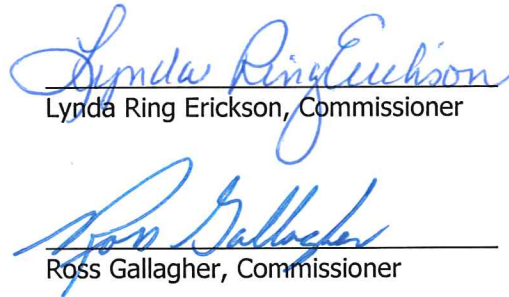 Lynda Ring Erickson
Lynda Ring Erickson, Commissioner
Ross Gallagher
Ross Gallagher, Commissioner